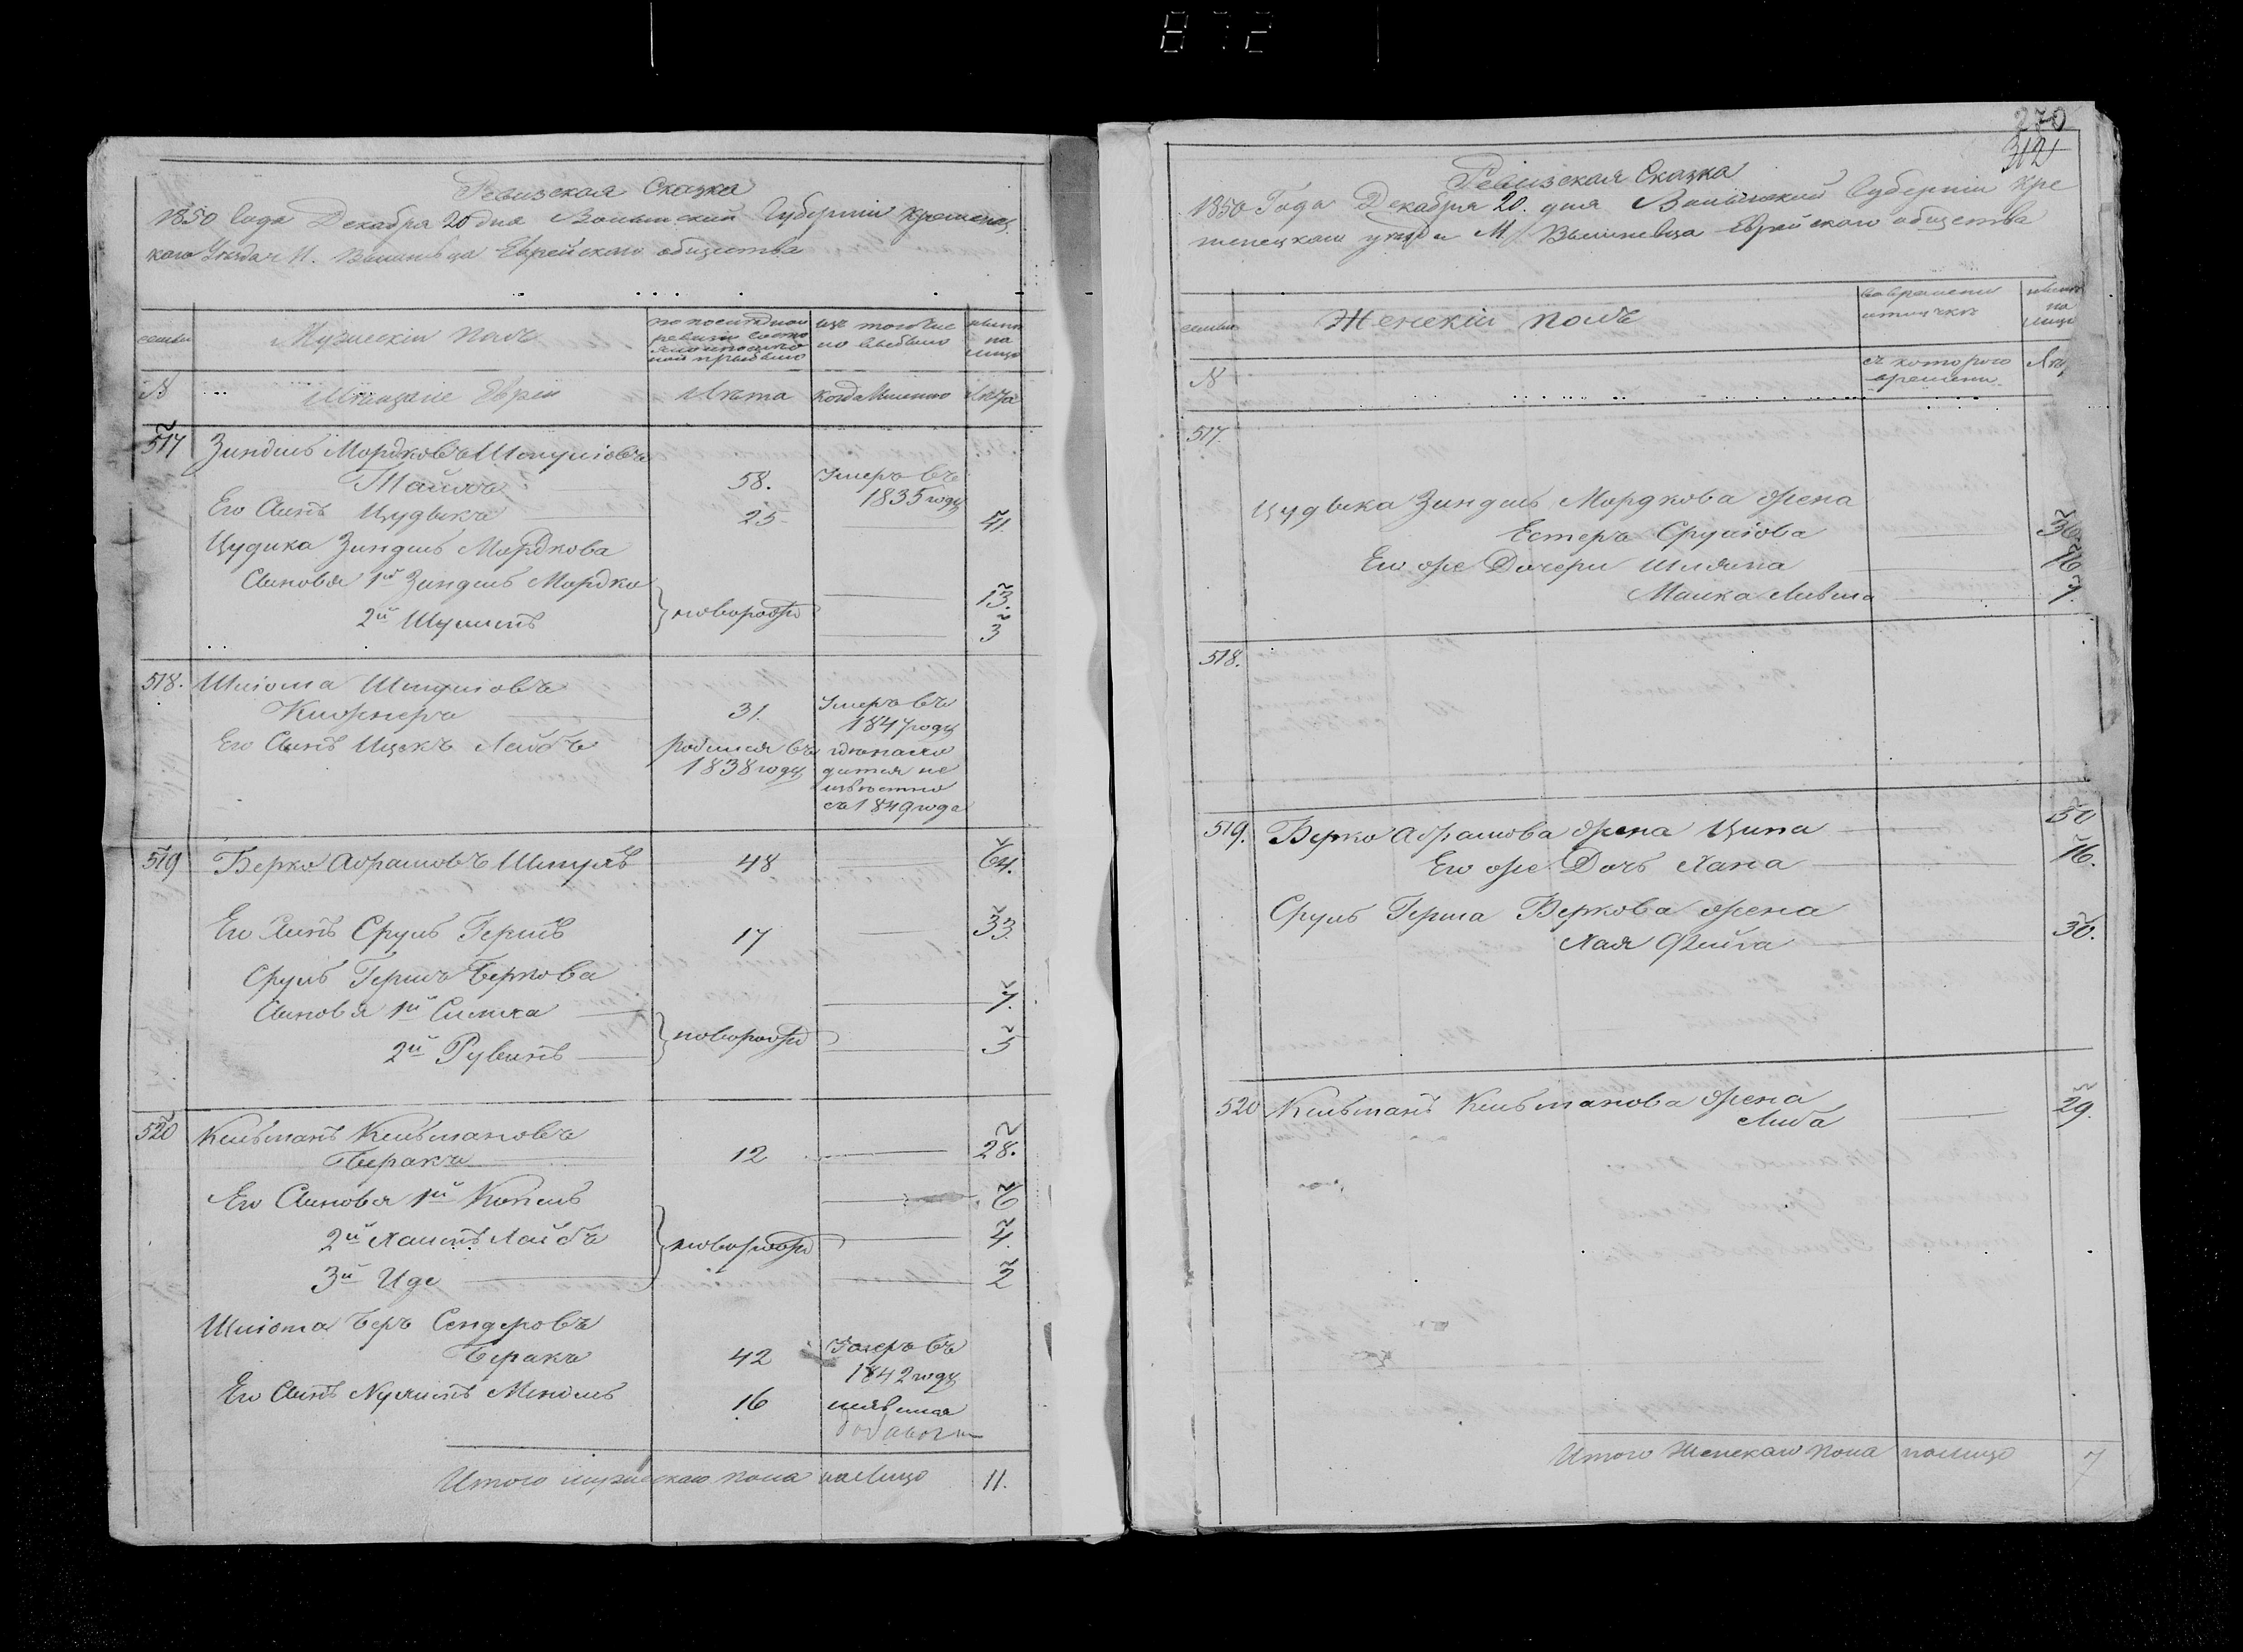 872
Ревизская Сказка
1850 Года Декабря 20 дня Волынской Губернии Кременец
каго Уезда М. Вишневца Еврейскаго общества
семьи
Мужеский полъ
по последней
ревизии состо
изъ того числе
выбыло
ныне
на
лицо
№
Мещане Евреи
Лѣта
когда имянно
Лѣта
517
Зиндель Мордковъ Шмулiовъ
58.
Умеръ въ
1835 году
Его Сынъ Цудыкъ
25
41.
Цудика Зиндель Мордкова
Сыновья 1й Зиндель Мордко
новорожд
13.
2й Шулимъ
3
518.
Шлiома Шмулiовъ
31.
Умеръ въ
1847 году
Его Сынъ Ицекъ Лейбъ
родился въ
1838 году
где нахо
дится не
извѣстно
съ 1849 года
519
Берко Абрамовъ Шмулъ
48
64.
Его Сынъ Сруль Гершъ
17
33
Сруль Гершъ Беркова
Сыновья 1й Симха
7.
2й Рувинъ
новорожд
5
520
Кельманъ Кельмановъ
Беракъ
12
28.
Его Сыновья 1й Копель
6
2й Хаимъ Лейбъ
новорожд
4.
3й Иде
2
Шлiома Беръ Сендеровъ
Беракъ
42
Умеръ въ
1842 году
Его Сынъ Нухимъ Мендель
16
Итого мужескаго пола налицо
11.
270
312
Ревизская Сказка
1850 Года Декабря 20. дня Волынской Губернии Кре
менецкаго уезда М. Вишневца Еврейскаго общества
семьи
Женскiй полъ
во временной
отлучке
ныне
на
лицо
№
съ котораго
времени
Лѣт
517.
Цудыка Зиндель Мордкова жена
Естеръ Срулiова
36
Его же Дочери Шлема
16
Малка Ливша
7.
518.
519.
Берко Абрамова жена Ципа
50
Его же Дочь Хана
16.
Сруль Герша Беркова жена
Хая Фейга
30.
520
Кельманъ Кельманова жена
Либа
29.
Итого Женскаго пола налицо
7